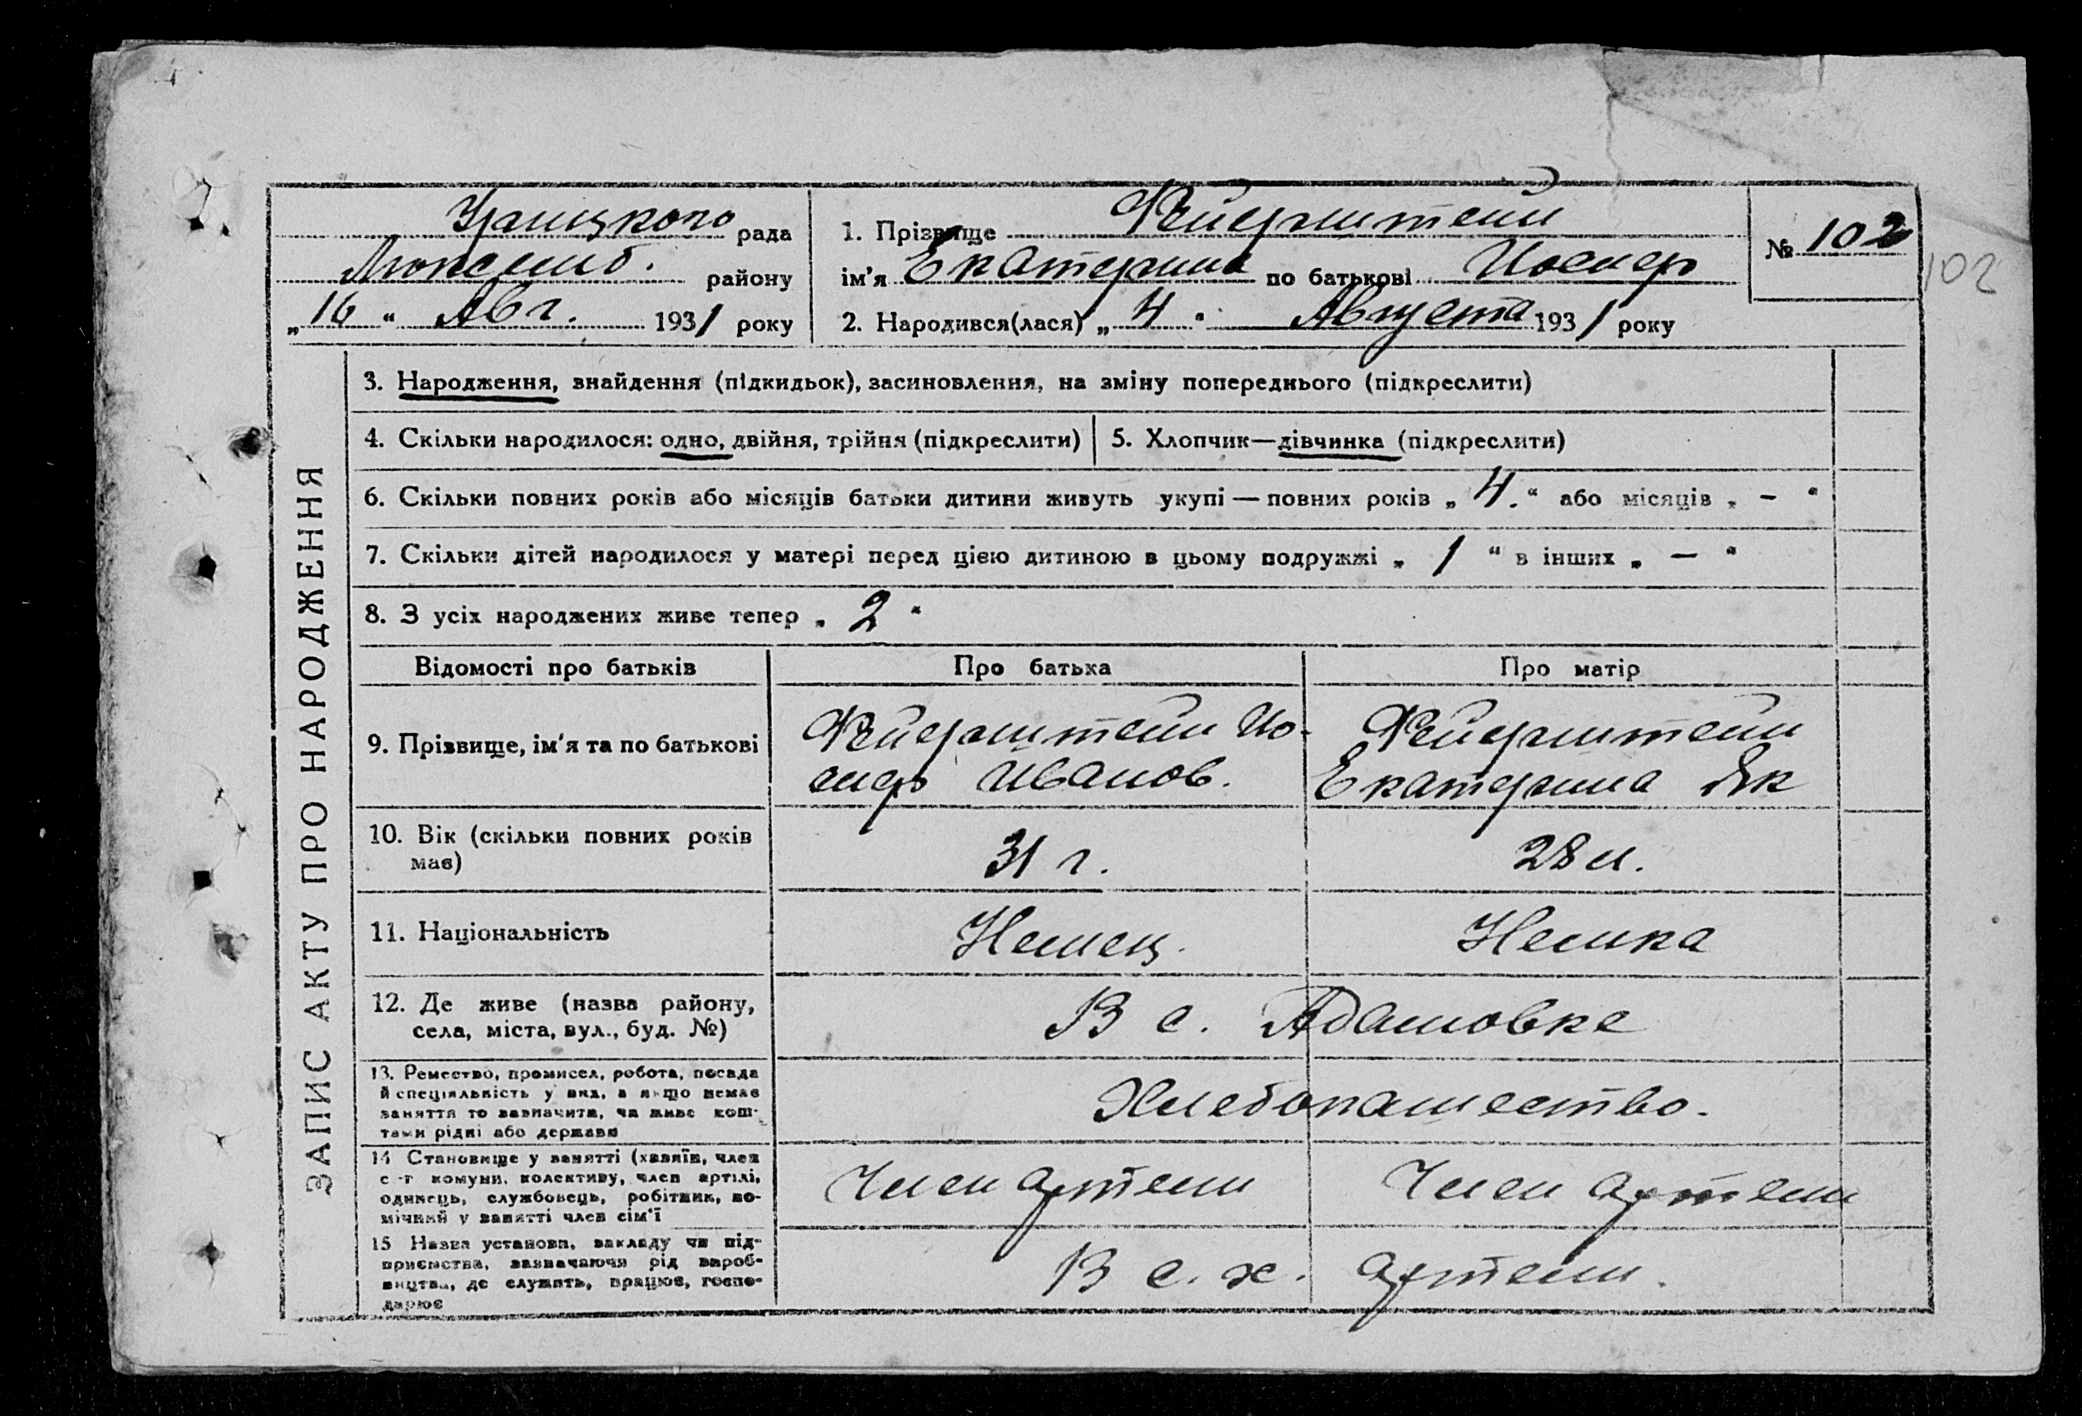 Урицкого рада
Люксемб. району
„ 16 “ Авг. 1931 року
1. Прізвище Фейерштейн
ім’я Екатерина по батькові Иосиф
2. Народився(лася) „ 4 “ Августа 1931 року
№ 102
102
ЗАПИС АКТУ ПРО НАРОДЖЕННЯ
3. Народження, знайдення (підкидьок), засиновлення, на зміну попереднього (підкреслити)
4. Скільки народилося: одно, двійня, трійня (підкреслити)
5. Хлопчик—дівчинка (підкреслити)
6. Скільки повних років або місяців батьки дитини живуть укупі — повних років „ 4. “ або місяців „ - “
7. Скільки дітей народилося у матері перед цією дитиною в цьому подружжі „ 1 “ в інших „ — “
8. З усіх народжених живе тепер „ 2 “
Відомості про батьків
Про батька
Про матір
9. Прізвище, ім’я та по батькові
Фейерштейн Ио-
сиф Иванов.
Фейерштейн
Екатерина Як
10. Вік (скільки повних років
має)
31 г.
28 л.
11. Національність
Немец.
Немка
12. Де живе (назва району,
села, міста, вул., буд. №)
В с. Адамовке
13. Ремество, промисел, робота, посада
й спеціяльність у них, а якщо немає
заняття то зазначити, чи живе кош-
тами рідні або держави
Хлебопашество.
14 Становище у занятті (хазяїн, член
с-г комуни, колективу, член артілі,
одинець, службовець, робітник, по-
мічний у занятті член сім’ї
Член артели
Член артели
15 Назва установи, закладу чи під-
приємства, зазначаючи рід вироб-
ництва, де служить, працює, госпо-
дарює
В с. х. артели.